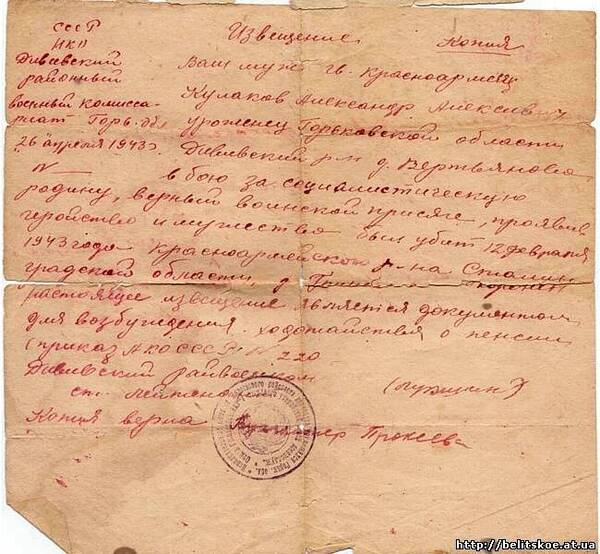 СССР
НКО
Дивеевский
районный
военный комисса-
риат Горьк. обл.
26 апреля 1943г
N
Извещение Копия
Ваш муж гв. красноармеец
Кулаков Александр Алексеевич
уроженец Горьковской области
Дивеевский р-н д. Вертьяново
в бою за социалистическую
родину, верный воинской присяге, проявив
геройство и мужество был убит 12 февраля
1943 года Красноармейского р-на Сталин
градской области, д.
настоящее извещение является документом
для возбуждения ходотайства о пенсии
(приказ НКО СССР N 220
Дивеевский райвоенком
ст. лейтенант
Копия верна
http://belitskoe.at.ua